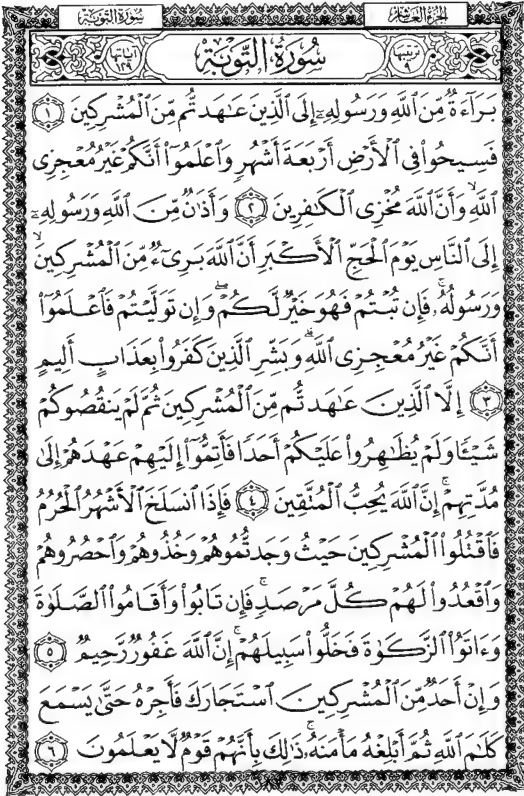 الجزء العاشر سورة التوبة
ترتيبها ٩ سورة التوبة آياتها ١٢٩
بَرَآءَةٌ مِّنَ ٱللَّهِ وَرَسُولِهِۦٓ إِلَى ٱلَّذِينَ عَٰهَدتُّم مِّنَ ٱلْمُشْرِكِينَ ١
فَسِيحُوا۟ فِى ٱلْأَرْضِ أَرْبَعَةَ أَشْهُرٍ وَٱعْلَمُوٓا۟ أَنَّكُمْ غَيْرُ مُعْجِزِى
ٱللَّهِ ۙ وَأَنَّ ٱللَّهَ مُخْزِى ٱلْكَٰفِرِينَ ٢ وَأَذَٰنٌ مِّنَ ٱللَّهِ وَرَسُولِهِۦٓ
إِلَى ٱلنَّاسِ يَوْمَ ٱلْحَجِّ ٱلْأَكْبَرِ أَنَّ ٱللَّهَ بَرِىٓءٌ مِّنَ ٱلْمُشْرِكِينَ ۙ
وَرَسُولُهُۥ ۚ فَإِن تُبْتُمْ فَهُوَ خَيْرٌ لَّكُمْ ۖ وَإِن تَوَلَّيْتُمْ فَٱعْلَمُوٓا۟
أَنَّكُمْ غَيْرُ مُعْجِزِى ٱللَّهِ ۗ وَبَشِّرِ ٱلَّذِينَ كَفَرُوا۟ بِعَذَابٍ أَلِيمٍ
٣ إِلَّا ٱلَّذِينَ عَٰهَدتُّم مِّنَ ٱلْمُشْرِكِينَ ثُمَّ لَمْ يَنقُصُوكُمْ
شَيْـًٔا وَلَمْ يُظَٰهِرُوا۟ عَلَيْكُمْ أَحَدًا فَأَتِمُّوٓا۟ إِلَيْهِمْ عَهْدَهُمْ إِلَىٰ
مُدَّتِهِمْ ۚ إِنَّ ٱللَّهَ يُحِبُّ ٱلْمُتَّقِينَ ٤ فَإِذَا ٱنسَلَخَ ٱلْأَشْهُرُ ٱلْحُرُمُ
فَٱقْتُلُوا۟ ٱلْمُشْرِكِينَ حَيْثُ وَجَدتُّمُوهُمْ وَخُذُوهُمْ وَٱحْصُرُوهُمْ
وَٱقْعُدُوا۟ لَهُمْ كُلَّ مَرْصَدٍ ۚ فَإِن تَابُوا۟ وَأَقَامُوا۟ ٱلصَّلَوٰةَ
وَءَاتَوُا۟ ٱلزَّكَوٰةَ فَخَلُّوا۟ سَبِيلَهُمْ ۚ إِنَّ ٱللَّهَ غَفُورٌ رَّحِيمٌ ٥
وَإِنْ أَحَدٌ مِّنَ ٱلْمُشْرِكِينَ ٱسْتَجَارَكَ فَأَجِرْهُ حَتَّىٰ يَسْمَعَ
كَلَٰمَ ٱللَّهِ ثُمَّ أَبْلِغْهُ مَأْمَنَهُۥ ۚ ذَٰلِكَ بِأَنَّهُمْ قَوْمٌ لَّا يَعْلَمُونَ ٦